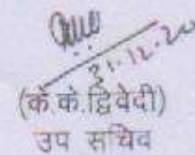 21.12.20
(के.के.द्विवेदी)
उप सचिव